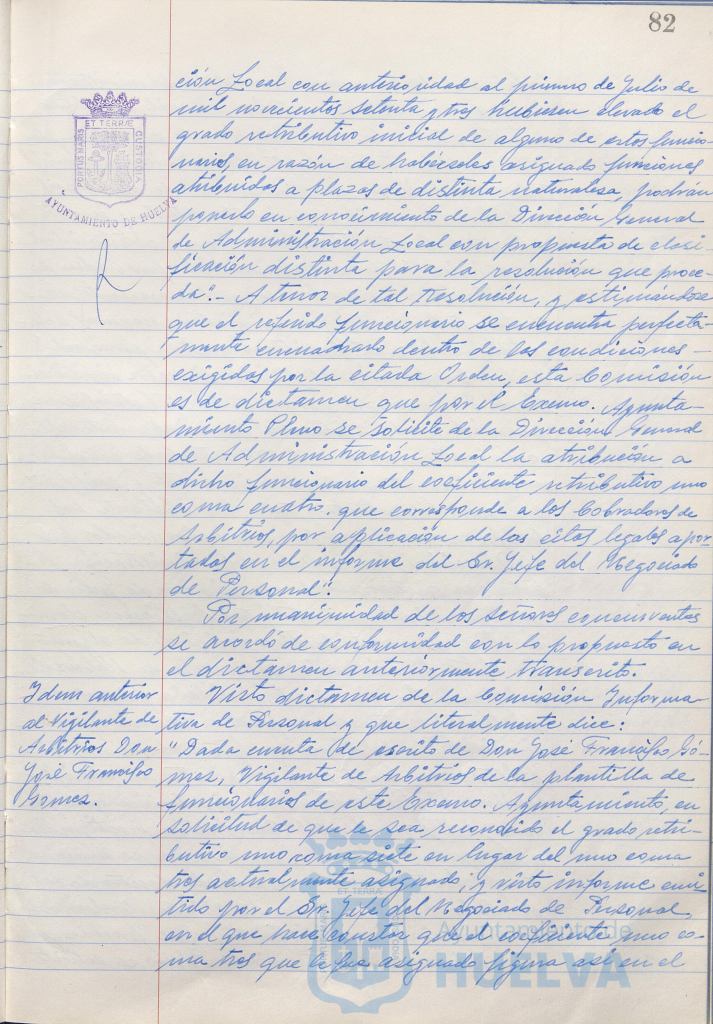 82
PORTUS MARIS
ET TERRÆ
CUSTODIA
AYUNTAMIENTO DE HUELVA
ción Local con anterioridad al primero de Julio de
mil novecientos setenta y tres hubiesen elevado el
grado retributivo inicial de alguno de estos funcio-
narios en razón de habérseles asignado funciones
atribuidas a plazas de distinta naturaleza, podrán
ponerlo en conocimiento de la Dirección General
de Administración Local con propuesta de clasi-
ficación distinta para la resolución que proce-
da".- A tenor de tal Resolución, y estimándose
que el referido funcionario se encuentra perfecta-
mente encuadrado dentro de las condiciones -
exigidas por la citada Orden, esta Comisión
es de dictamen que por el Excmo. Ayunta-
miento Pleno se solicite de la Dirección General
de Administración Local la atribución a
dicho funcionario del coeficiente retributivo uno
coma cuatro, que corresponde a los Cobradores de
Arbitrios, por aplicación de las citas legales apor-
tadas en el informe del Sr. Jefe del Negociado
de Personal".
Por unanimidad de los señores concurrentes
se acordó de conformidad con lo propuesto en
el dictamen anteriormente transcrito.
Idem anterior
al Vigilante de
Arbitrios Don
José Francisco
Gomez.
Visto dictamen de la Comisión Informa-
tiva de Personal y que literalmente dice:
"Dada cuenta de escrito de Don José Francisco Gó-
mez, Vigilante de Arbitrios de la plantilla de
funcionarios de este Excmo. Ayuntamiento, en
solicitud de que le sea reconocido el grado retri-
butivo uno coma siete en lugar del uno coma
tres actualmente asignado; y visto informe emi-
tido por el Sr. Jefe del Negociado de Personal,
en el que hace constar que el coeficiente uno co-
ma tres que le fue asignado figura así en el
Ayuntamiento de
HUELVA